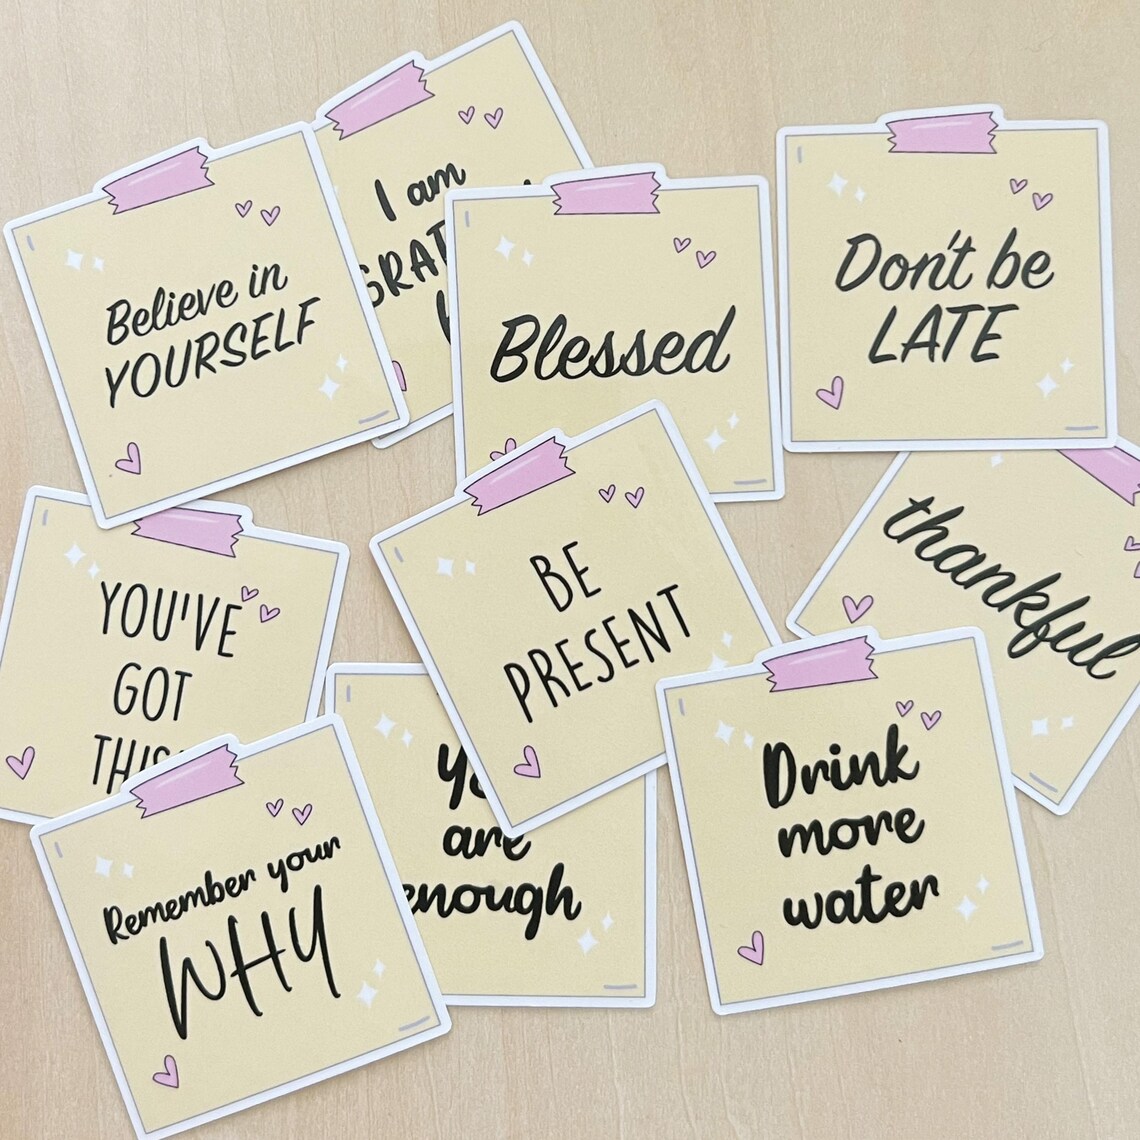 Believe in
YOURSELF
I am
Blessed
Don't be
LATE
YOU'VE
GOT
BE
PRESENT
thankful
Remember your
WHY
are
enough
Drink
more
water